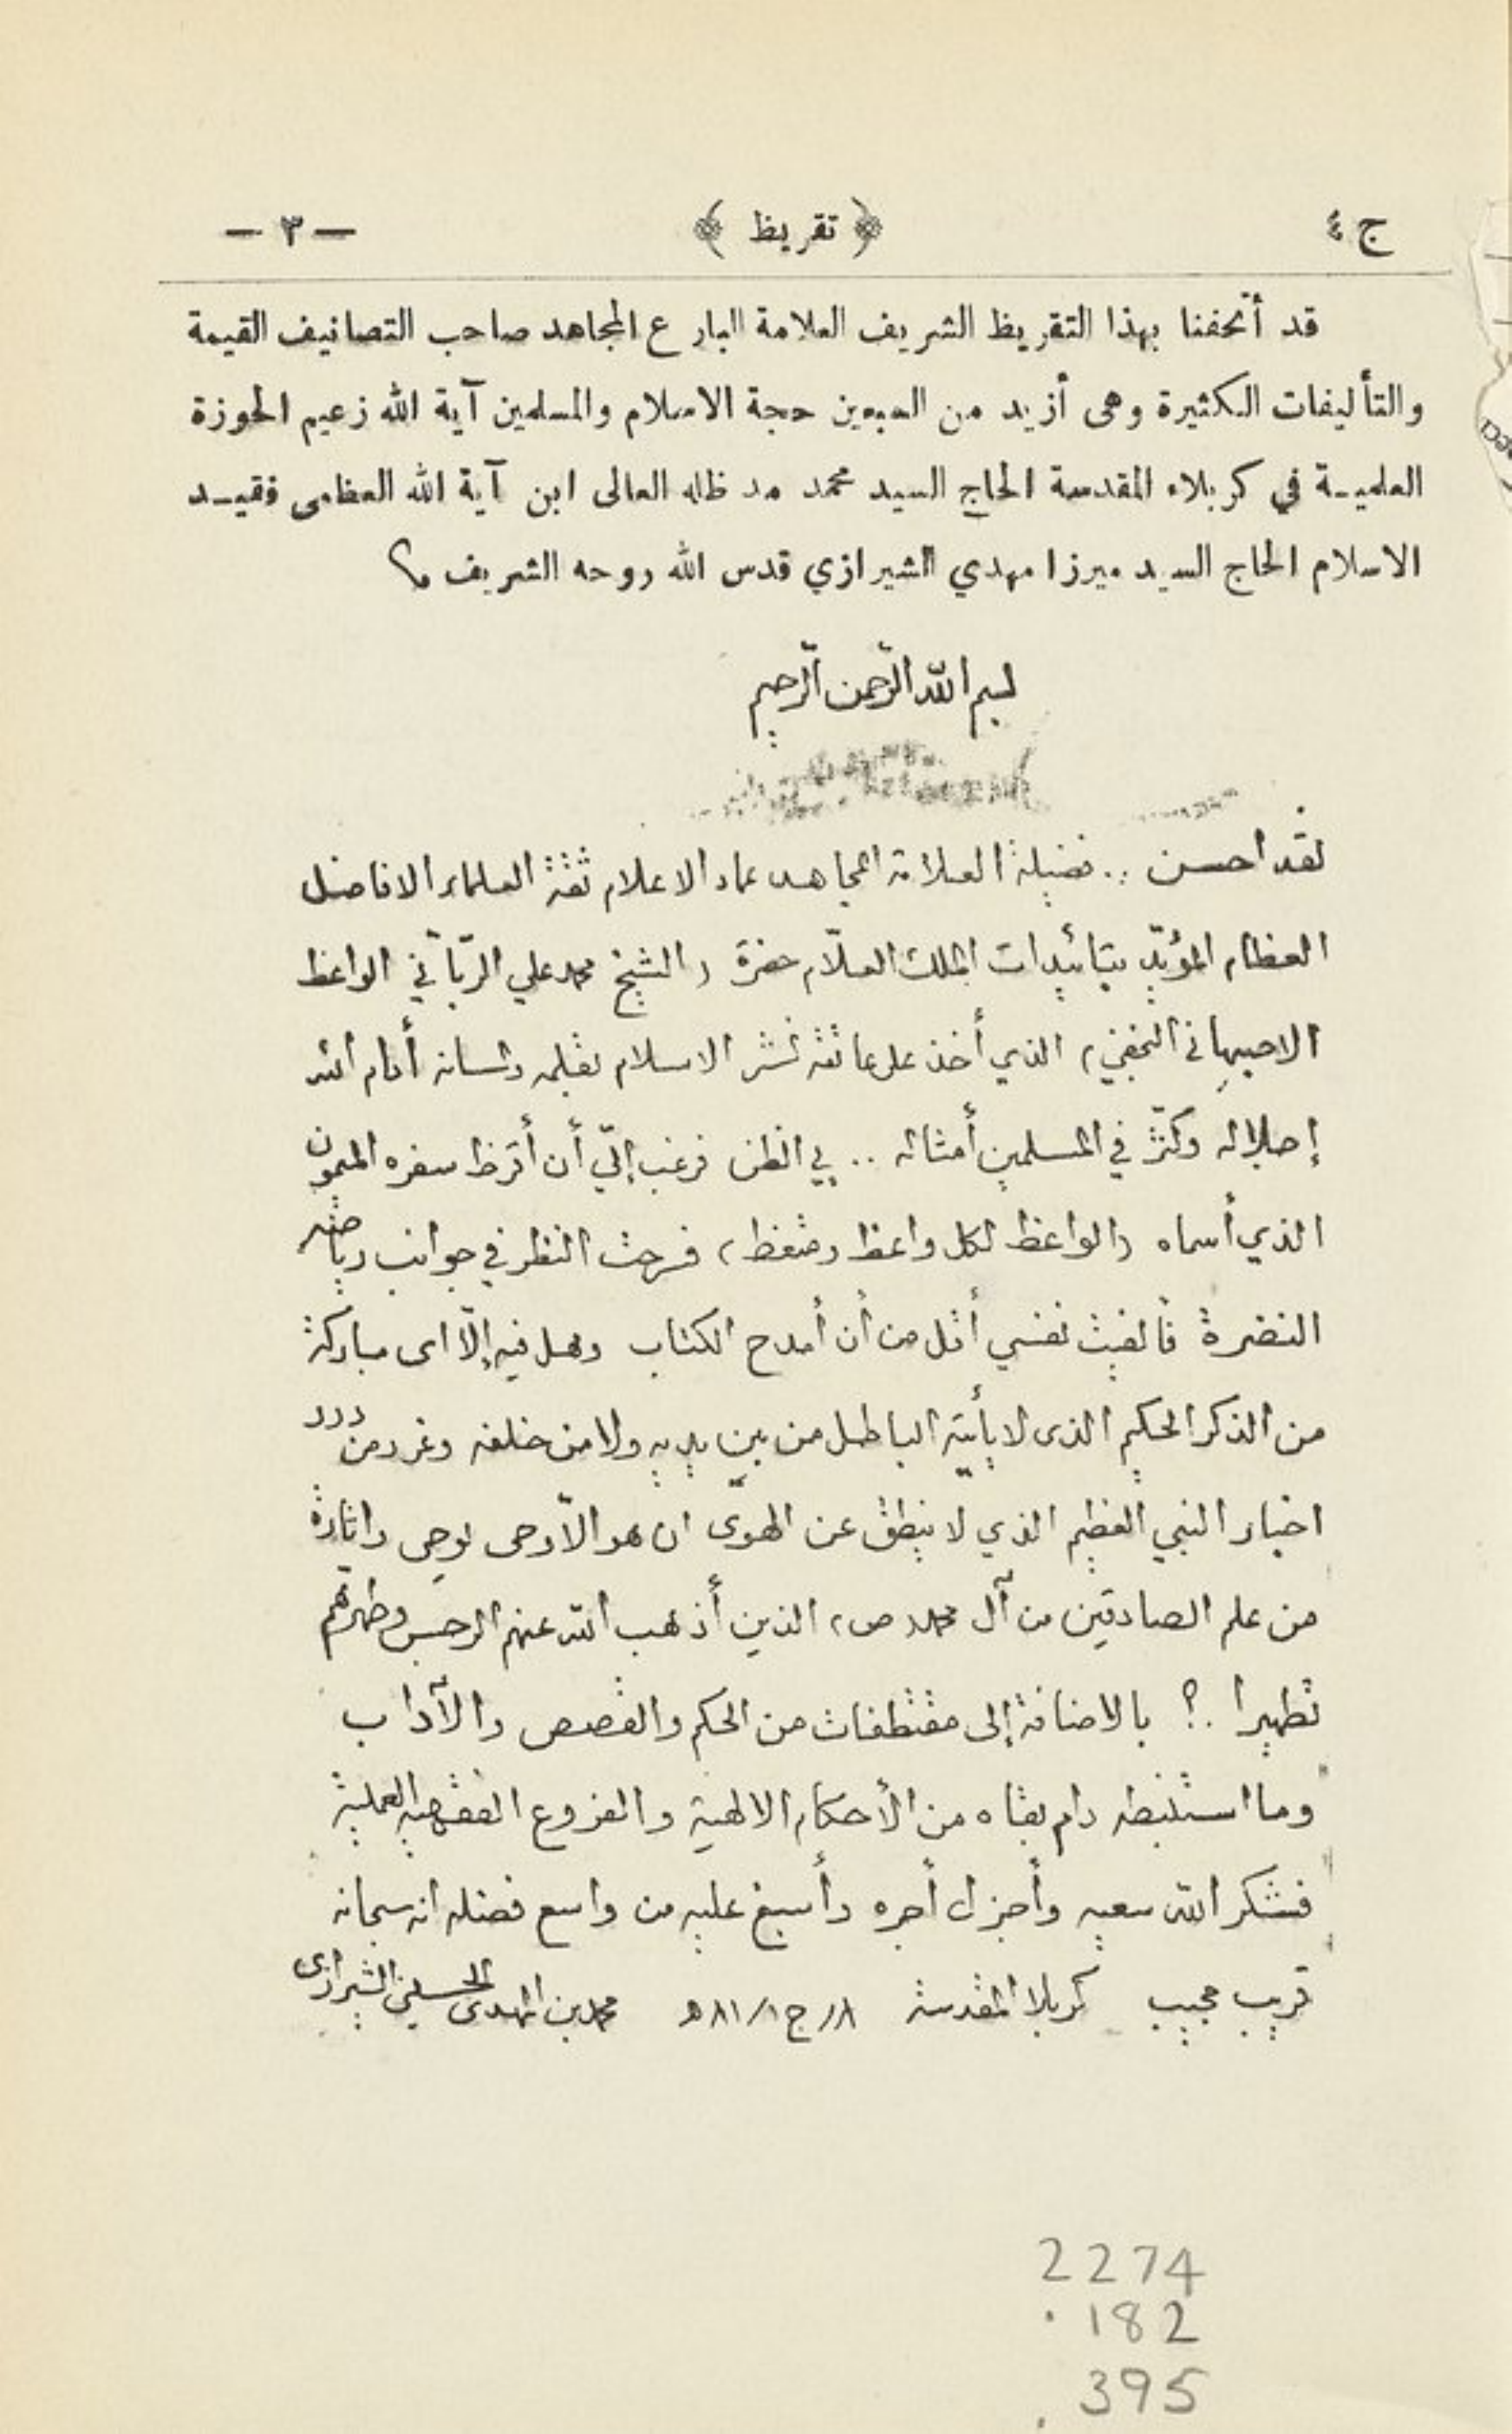 ج ٤ ﴿ تقريظ ﴾ — ٣ —
قد أتحفنا بهذا التقريظ الشريف العلامة البارع المجاهد صاحب التصانيف القيمة
والتأليفات الكثيرة وهى أزيد من السبعين حجة الاسلام والمسلمين آية الله زعيم الحوزة
العلميـة في كربلاء المقدسة الحاج السيد محمد مد ظله العالى ابن آية الله العظمى فقيـد
الاسلام الحاج السيد ميرزا مهدي الشيرازي قدس الله روحه الشريف
بسم الله الرّحمن الرّحيم
لقد احسن .. فضيلة العلامة المجاهد عماد الاعلام ثقة العلماء الافاضل
العظام المؤيّد بتائيدات الملك العلّام حضرة (الشيخ محمد علي الربّاني الواعظ
الاصبهاني النجفي) الذي أخذ على عاتقه نشر الاسلام بقلمه ولسانه أدام الله
إجلاله وكثّر في المسلمين أمثاله .. بي الظن فرغب إليّ أن أقرظ سفره الميمون
الذي أسماه (الواعظ لكل واعظ ومتعظ) فسرحت النظر في جوانب رياضه
النضرة فألفيت نفسي أقل من أن أمدح الكتاب وهل فيه إلّا اى مباركة
من الذكر الحكيم الذى لا يأتيه الباطل من بين يديه ولا من خلفه وغرر من درر
اخبار النبي العظيم الذي لا ينطق عن الهوى ان هو الّا وحى يوحى واثارة
من علم الصادقين من آل محمد (ص) الذين أذهب الله عنهم الرجس وطهرهم
تطهيرا .؟ بالاضافة إلى مقتطفات من الحكم والقصص والآداب
وما استنبطه دام بقاه من الأحكام الالهية والفروع الفقهية العملية
فشكر الله سعيه وأجزل أجره وأسبغ عليه من واسع فضله انه سبحانه
قريب مجيب كربلا المقدسة ٨/ ج ١/ ٨١ هـ محمد بن المهدى الحسيني الشيرازى
2274
.182
.395